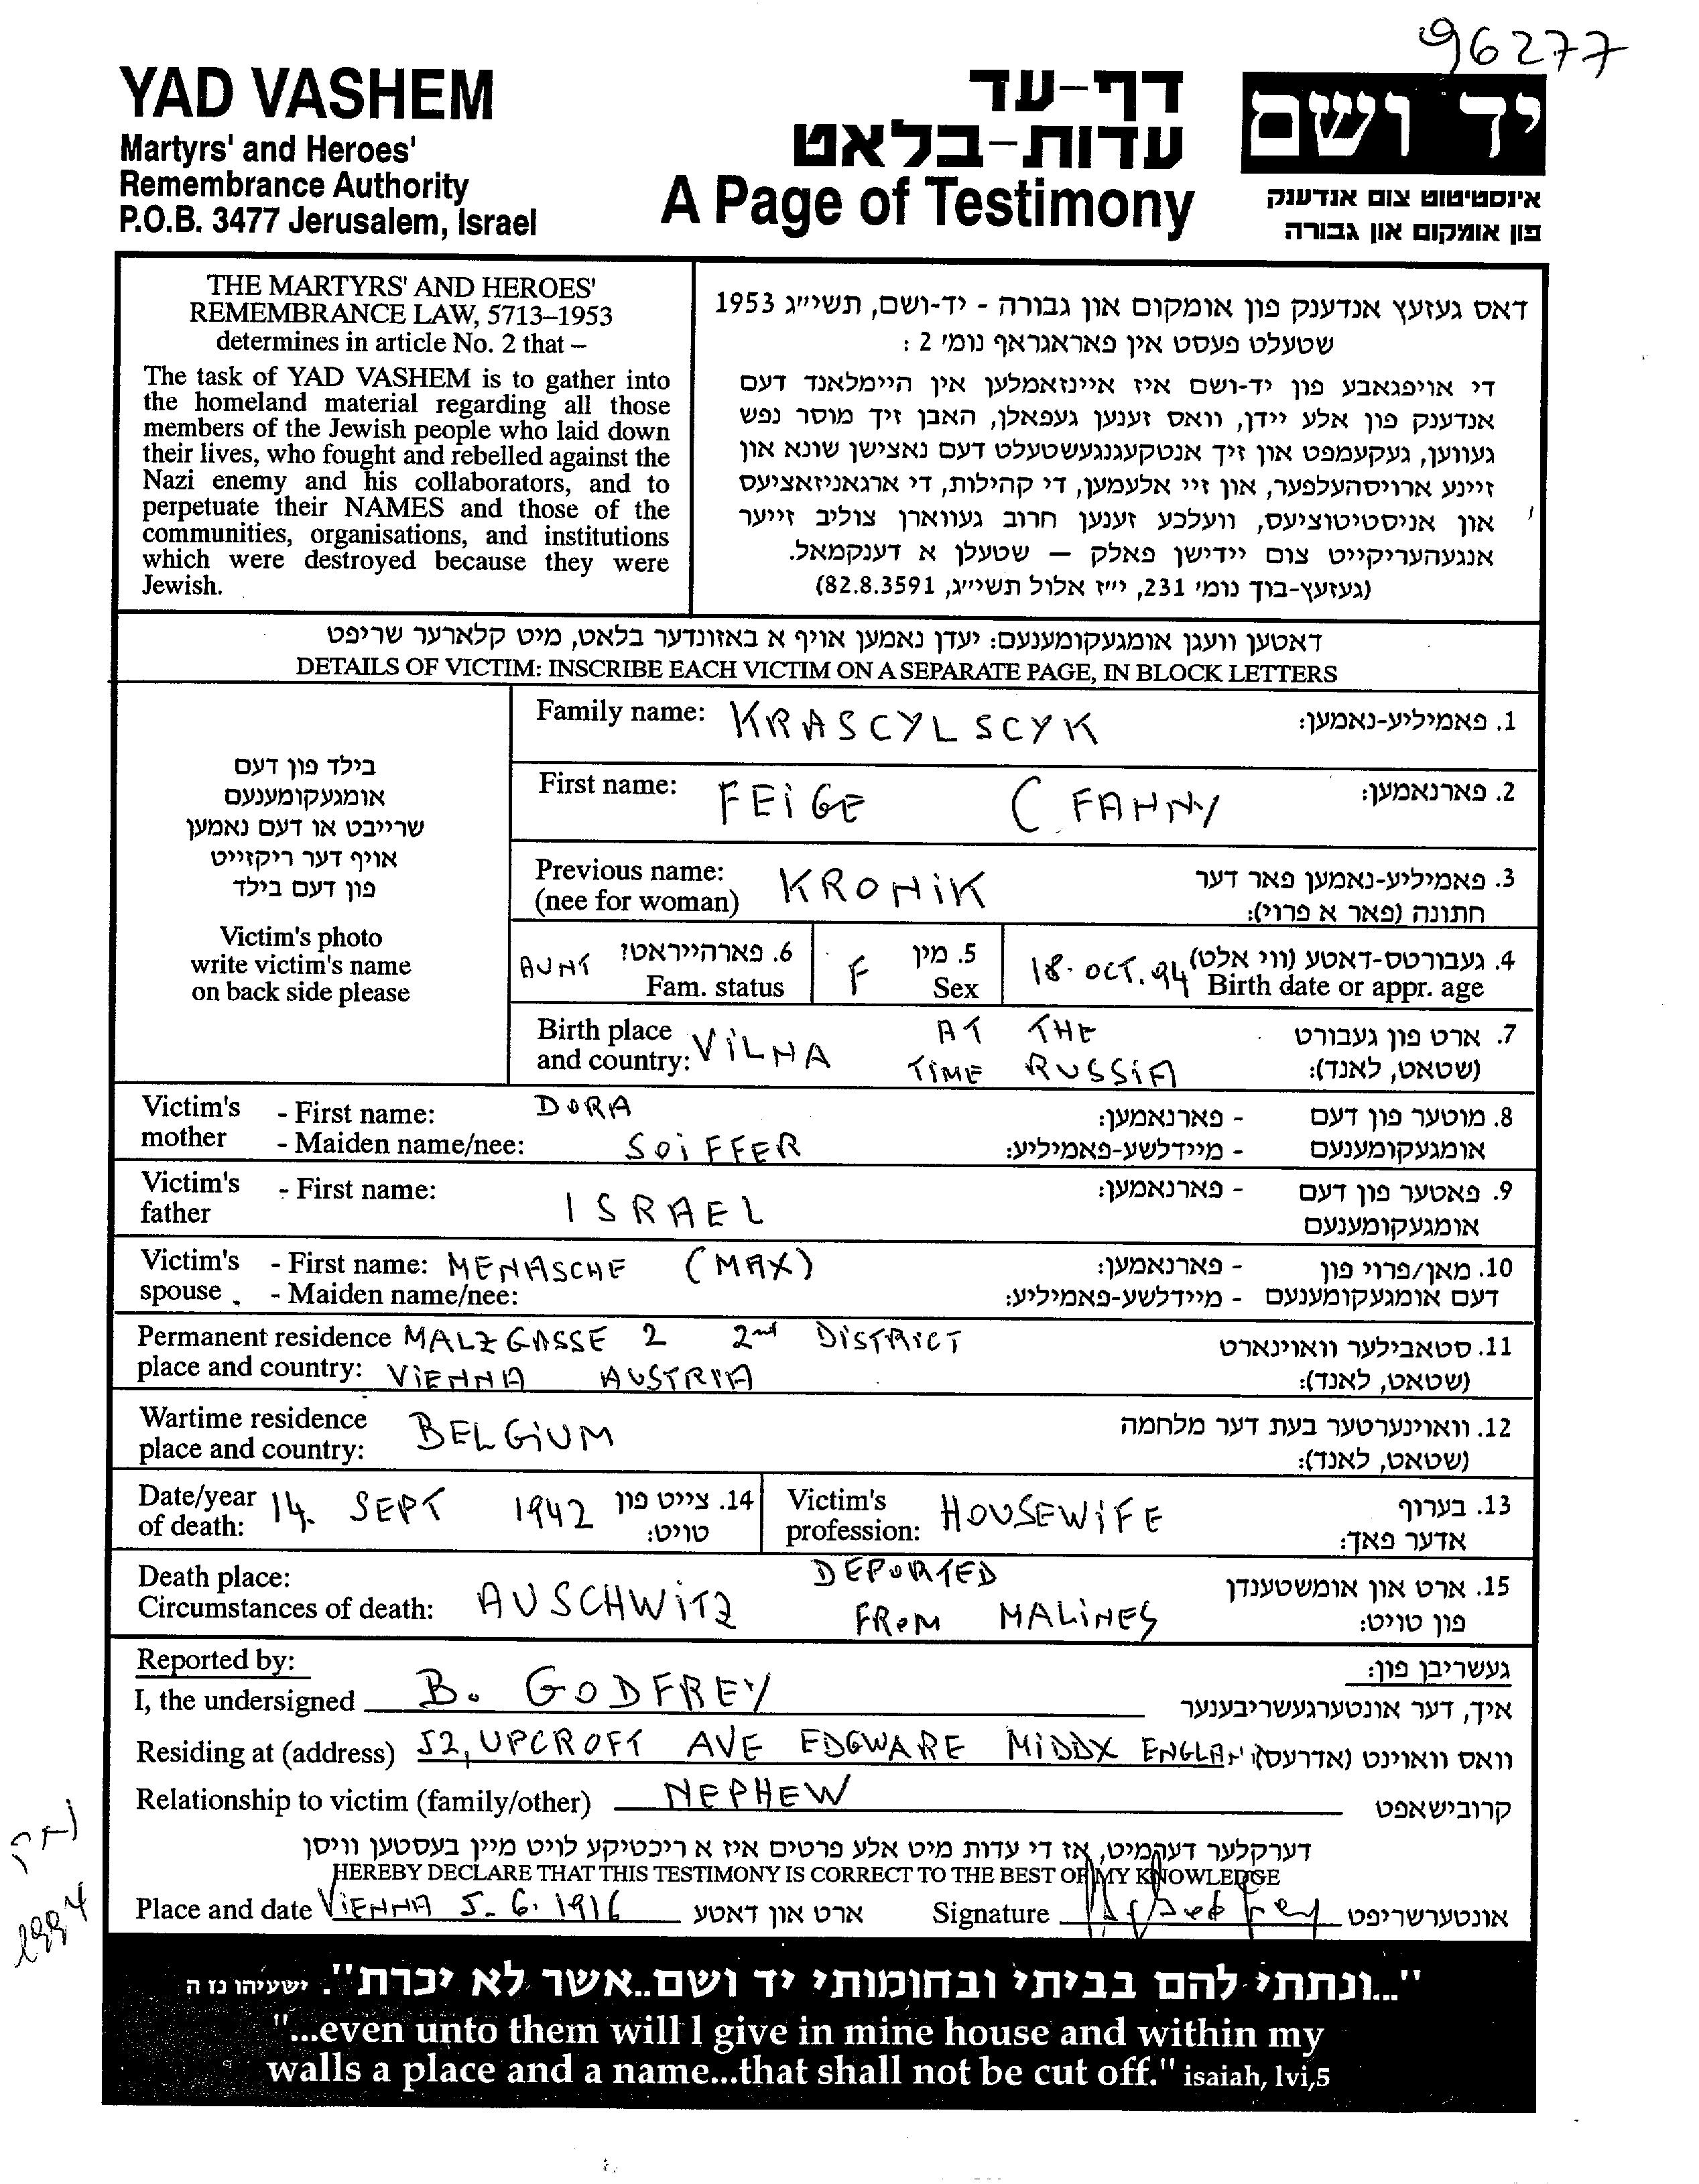 96277
YAD VASHEM
Martyrs' and Heroes'
Remembrance Authority
P.O.B. 3477 Jerusalem, Israel
דף-עד
עדות-בלאט
A Page of Testimony
יד ושם
אינסטיטוט צום אנדענק
פון אומקום און גבורה
THE MARTYRS' AND HEROES'
REMEMBRANCE LAW, 5713–1953
determines in article No. 2 that –
The task of YAD VASHEM is to gather into
the homeland material regarding all those
members of the Jewish people who laid down
their lives, who fought and rebelled against the
Nazi enemy and his collaborators, and to
perpetuate their NAMES and those of the
communities, organisations, and institutions
which were destroyed because they were
Jewish.
דאס געזעץ אנדענק פון אומקום און גבורה - יד-ושם, תשי״ג 1953
שטעלט פעסט אין פאראגראף נומ׳ 2 :
די אויפגאבע פון יד-ושם איז איינזאמלען אין היימלאנד דעם
אנדענק פון אלע יידן, וואס זענען געפאלן, האבן זיך מוסר נפש
געווען, געקעמפט און זיך אנטקעגנגעשטעלט דעם נאצישן שונא און
זיינע ארויסהעלפער, און זיי אלעמען, די קהילות, די ארגאניזאציעס
און אניסטיטוציעס, וועלכע זענען חרוב געווארן צוליב זייער
אנגעהעריקייט צום יידישן פאלק — שטעלן א דענקמאל.
(געזעץ-בוך נומ׳ 231, י״ז אלול תשי״ג, 82.8.3591)
דאטען וועגן אומגעקומענעם: יעדן נאמען אויף א באזונדער בלאט, מיט קלארער שריפט
DETAILS OF VICTIM: INSCRIBE EACH VICTIM ON A SEPARATE PAGE, IN BLOCK LETTERS
בילד פון דעם
אומגעקומענעם
שרייבט או דעם נאמען
אויף דער ריקזייט
פון דעם בילד
Victim's photo
write victim's name
on back side please
Family name: KRASCYLSCYK 1. פאמיליע-נאמען:
First name: FEIGE ( FANNY 2. פארנאמען:
Previous name: 3. פאמיליע-נאמען פאר דער
(nee for woman) KRONIK חתונה (פאר א פרוי):
AUNT 6. פארהייראט? F 5. מין 18. OCT. 94 4. געבורטס-דאטע (ווי אלט)
Fam. status Sex Birth date or appr. age
Birth place VILNA AT THE 7. ארט פון געבורט
and country: TIME RUSSIA (שטאט, לאנד):
Victim's - First name: DORA - פארנאמען: 8. מוטער פון דעם
mother - Maiden name/nee: SOIFFER - מיידלשע-פאמיליע: אומגעקומענעם
Victim's - First name: - פארנאמען: 9. פאטער פון דעם
father ISRAEL אומגעקומענעם
Victim's - First name: MENASCHE (MAX) - פארנאמען: 10. מאן/פרוי פון
spouse - Maiden name/nee: - מיידלשע-פאמיליע: דעם אומגעקומענעם
Permanent residence MALZGASSE 2 2nd DISTRICT 11. סטאבילער וואוינארט
place and country: VIENNA AUSTRIA (שטאט, לאנד):
Wartime residence 12. וואוינערטער בעת דער מלחמה
place and country: BELGIUM (שטאט, לאנד):
Date/year 14. SEPT 1942 14. צייט פון Victim's HOUSEWIFE 13. בערוף
of death: טויט: profession: אדער פאך:
Death place: DEPORTED 15. ארט און אומשטענדן
Circumstances of death: AUSCHWITZ FROM MALINES פון טויט:
Reported by: געשריבן פון:
I, the undersigned B. GODFREY איך, דער אונטערגעשריבענער
Residing at (address) 52, UPCROFT AVE EDGWARE MIDDX ENGLAN וואס וואוינט (אדרעס)
Relationship to victim (family/other) NEPHEW קרובישאפט
דערקלער דערמיט, אז די עדות מיט אלע פרטים איז א ריכטיקע לויט מיין בעסטען וויסן
HEREBY DECLARE THAT THIS TESTIMONY IS CORRECT TO THE BEST OF MY KNOWLEDGE
Place and date VIENNA 5.6.1916 ארט און דאטע Signature אונטערשריפט
"...ונתתי להם בביתי ובחומותי יד ושם..אשר לא יכרת". ישעיהו נז ה
"...even unto them will I give in mine house and within my
walls a place and a name...that shall not be cut off." isaiah, lvi,5